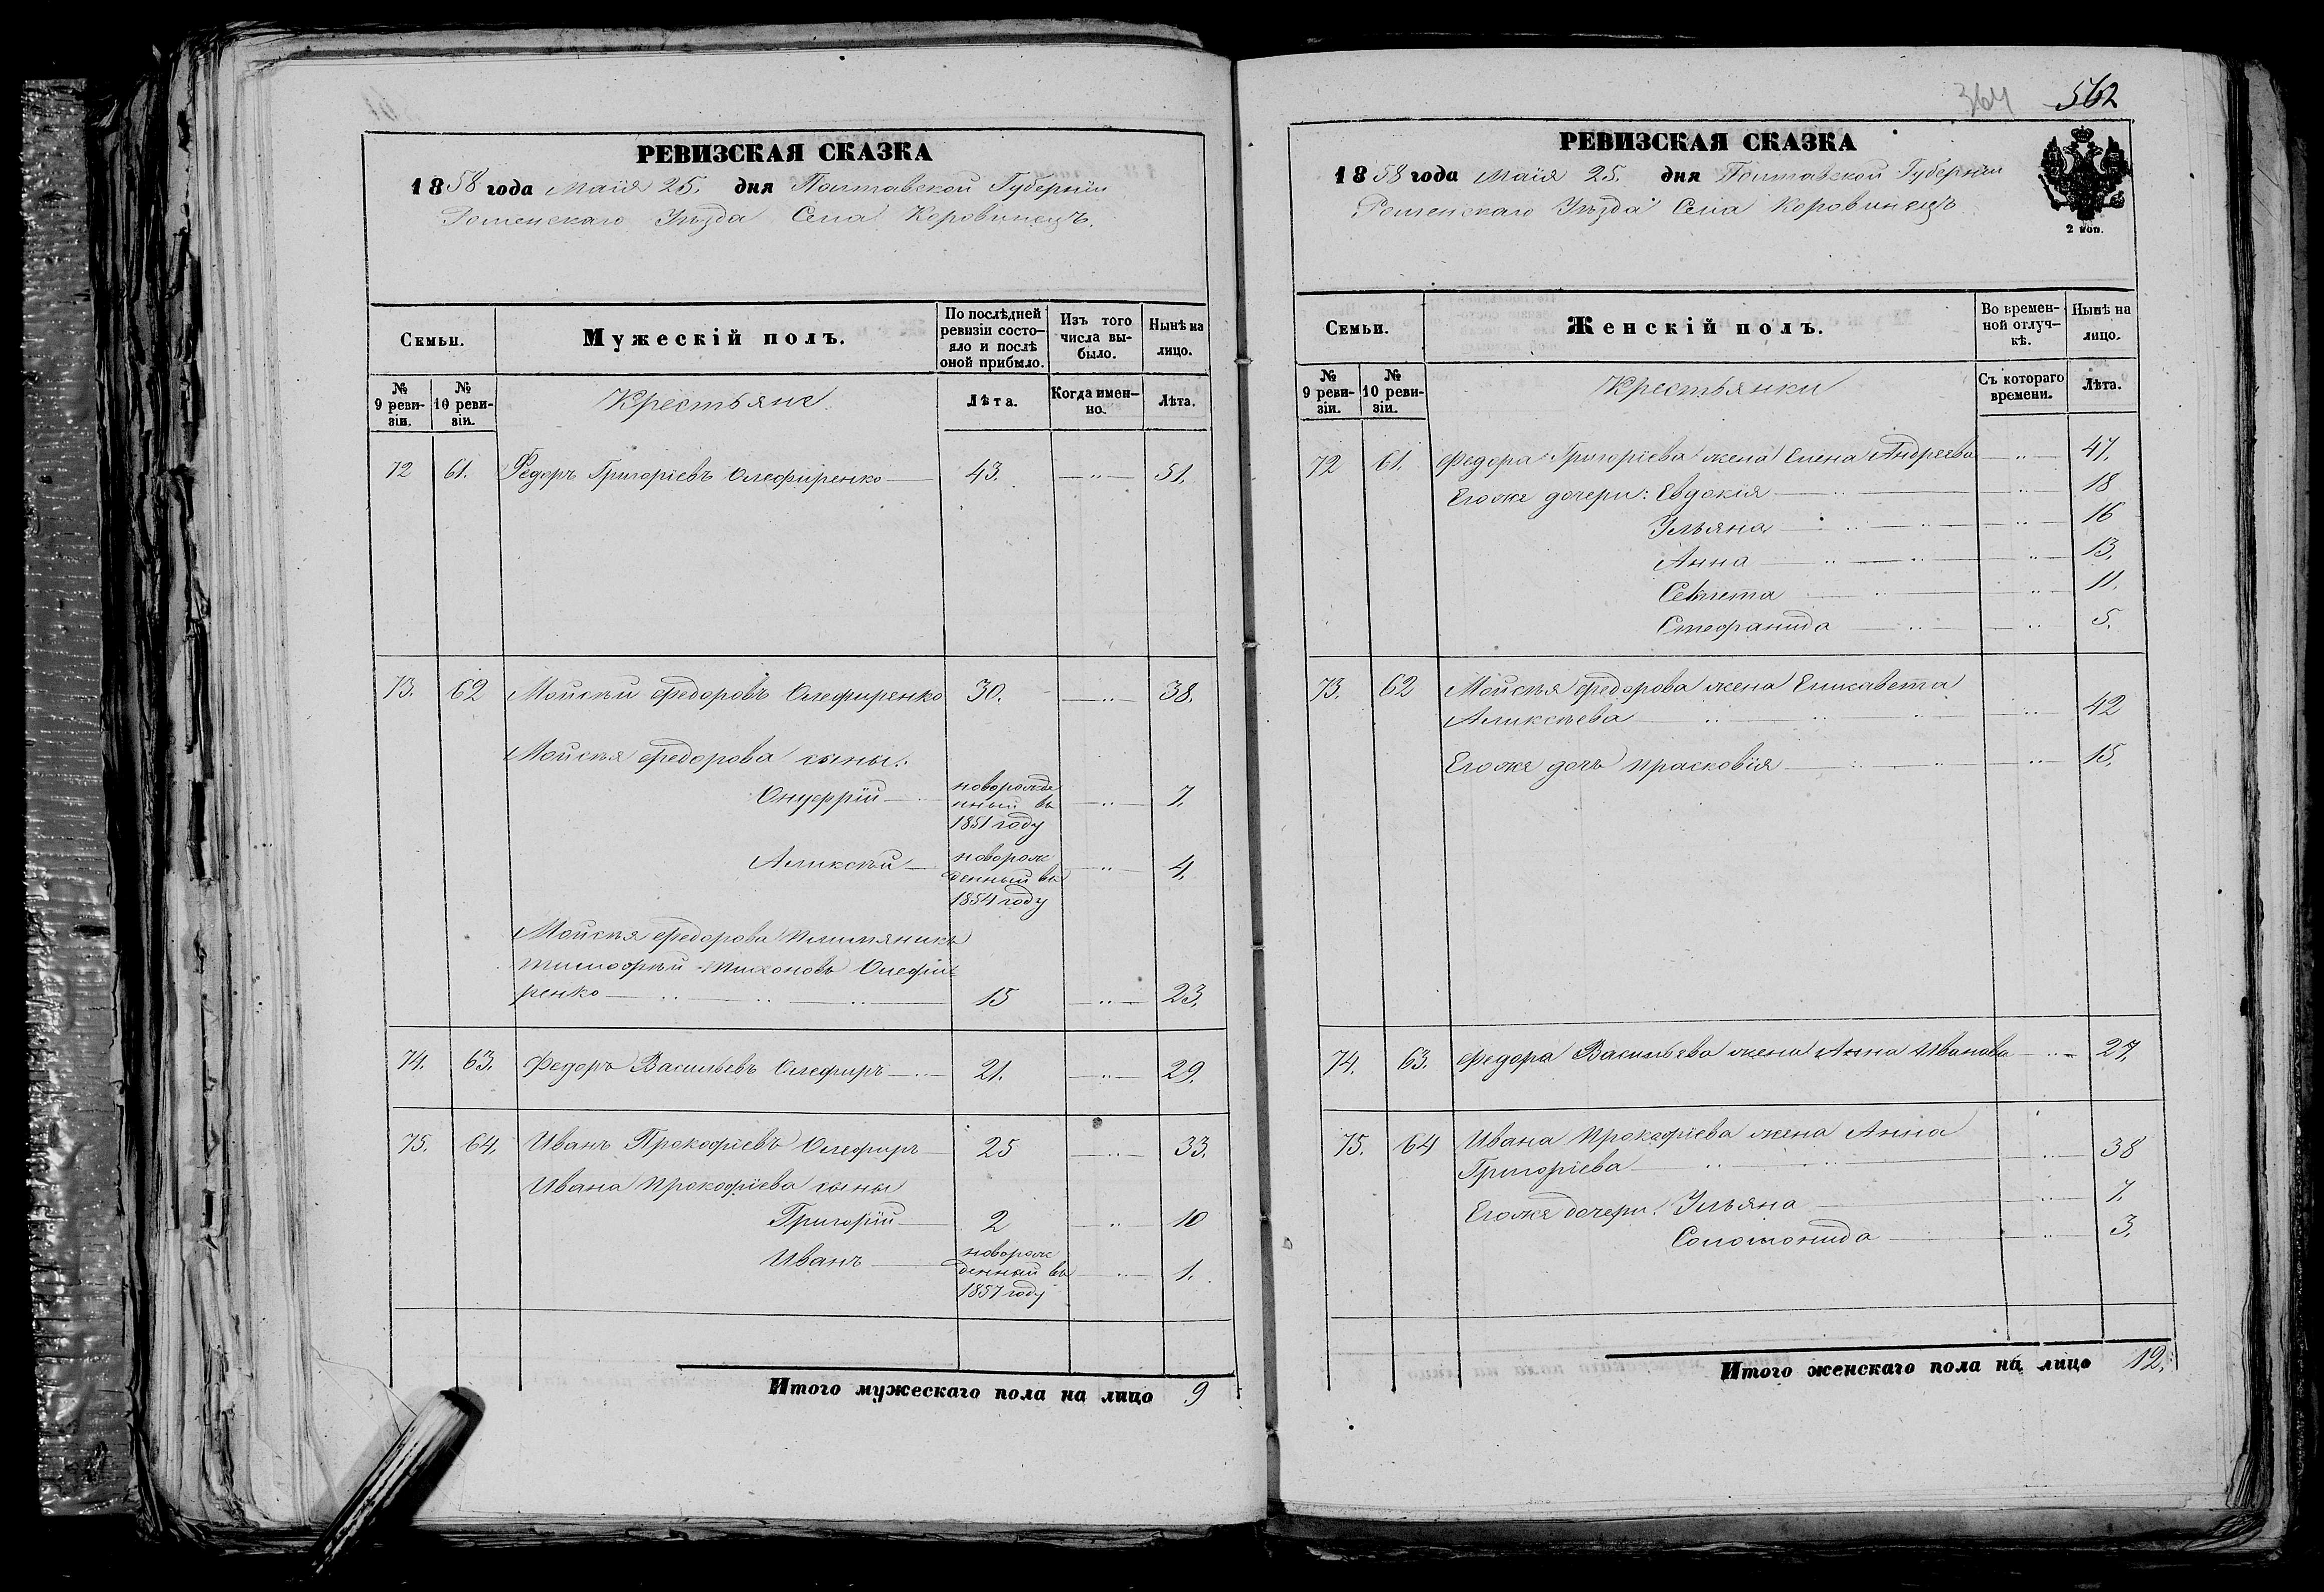 РЕВИЗСКАЯ СКАЗКА
1858 года Маія 25. дня Полтавской Губерніи
Роменскаго Уѣзда Села Коровинецъ.
Семьи.
Мужескій полъ.
По послѣдней ревизіи состояло и послѣ оной прибыло.
Изъ того числа выбыло.
Нынѣ на лицо.
№ 9 ревизіи.
№ 10 ревизіи.
Крестьяне
Лѣта.
Когда именно.
Лѣта.
72 61. Федоръ Григоріевъ Олефиренко — 43. — „ — 51.
73. 62 Мойсѣй Федоровъ Олефиренко 30. — „ — 38.
Мойсѣя Федорова сыны:
Онуфрій — новорожденный въ 1851 году — „ — 7.
Аликсѣй — новорожденный въ 1854 году — „ — 4.
Мойсѣя Федорова племяникъ
Тимофѣй Тихоновъ Олефи-
ренко — 15 — „ — 23.
74. 63. Федоръ Васильевъ Олефиръ — 21. — „ — 29.
75. 64. Иванъ Прокофіевъ Олефиръ 25 — „ — 33.
Ивана Прокофіева сыны
Григорій — 2 — „ 10
Иванъ — новорожденный въ 1857 году — „ — 1.
Итого мужескаго пола на лицо 9
364 562
РЕВИЗСКАЯ СКАЗКА
1858 года Маія 25. дня Полтавской Губерніи
Роменскаго Уѣзда Села Коровинецъ
2 коп.
Семьи.
Женскій полъ.
Во временной отлучкѣ.
Нынѣ на лицо.
№ 9 ревизіи.
№ 10 ревизіи.
Крестьянки
Съ котораго времени.
Лѣта.
72 61. Федора Григоріева жена Елена Андреева — „ — 47.
Егоже дочери: Евдокія — „ — 18
Ульяна — „ — 16
Анна — „ — 13.
„ — 11.
Стефанида — „ 5.
73. 62 Мойсѣя Федорова жена Елисавета
Аликсѣева — „ — 42
Егоже дочь Прасковія — „ — 15.
74. 63. Федора Васильева жена Анна Иванова — „ — 27.
75. 64 Ивана Прокофіева жена Анна
Григоріева — „ — 38
Егоже дочери: Ульяна — „ — 7.
Соломонида — „ — 3.
Итого женскаго пола на лицо 12.